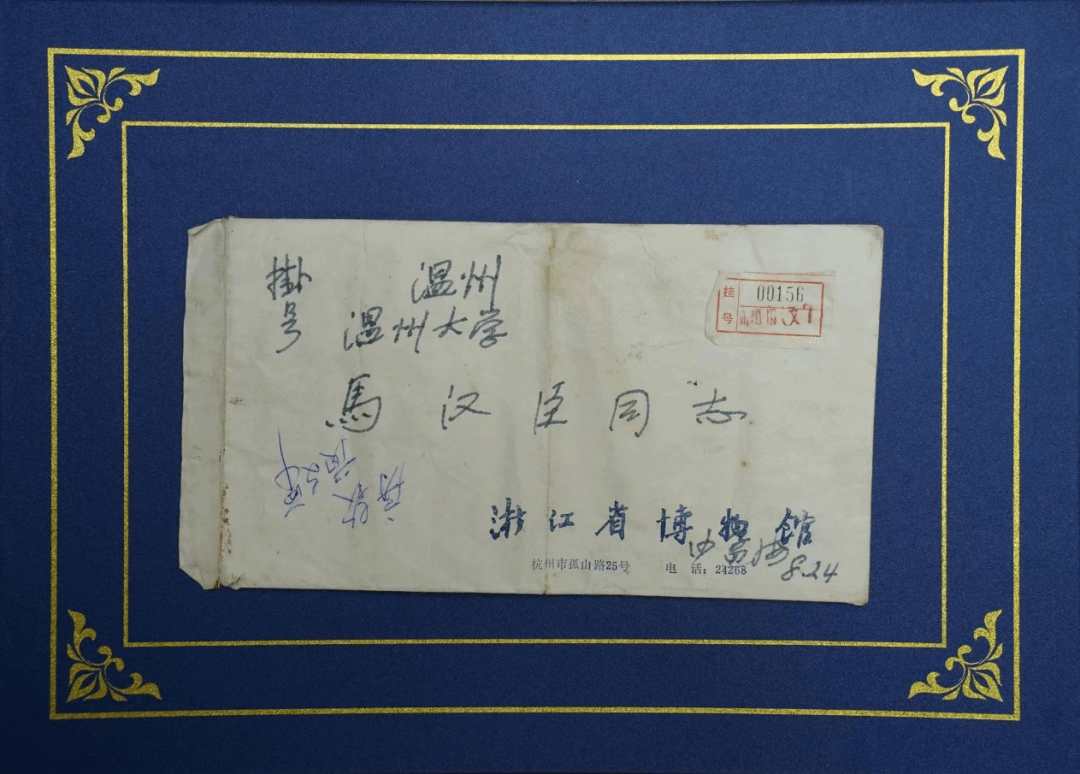 掛号
温州
温州大学
馬汉臣同志
挂号
00156
浙江省博物馆
沙孟海
8.24
杭州市孤山路25号 电话：24268